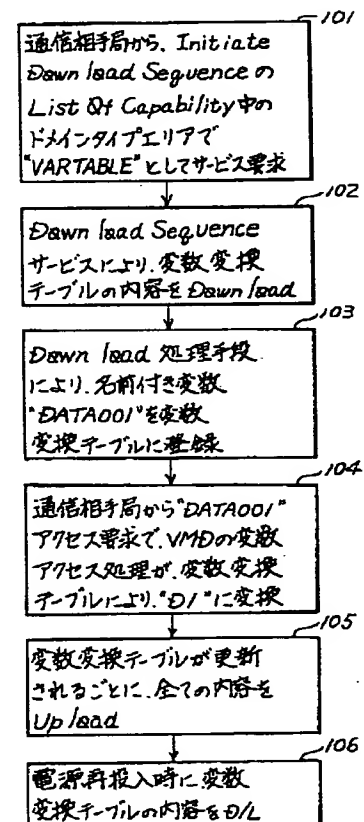 101
通信相手局から、Initiate
Down load Sequence の
List Of Capability 中の
ドメインタイプエリアで
"VARTABLE"としてサービス要求
102
Down load Sequence
サービスにより、変数変換
テーブルの内容を Down load
103
Down load 処理手段
により、名前付き変数
"DATA001"を変数
変換テーブルに登録
104
通信相手局から"DATA001"
アクセス要求で、VMDの変数
アクセス処理が、変数変換
テーブルにより、"D1"に変換
105
変数変換テーブルが更新
されるごとに、全ての内容を
Up load
106
電源再投入時に変数
変換テーブルの内容をD/L